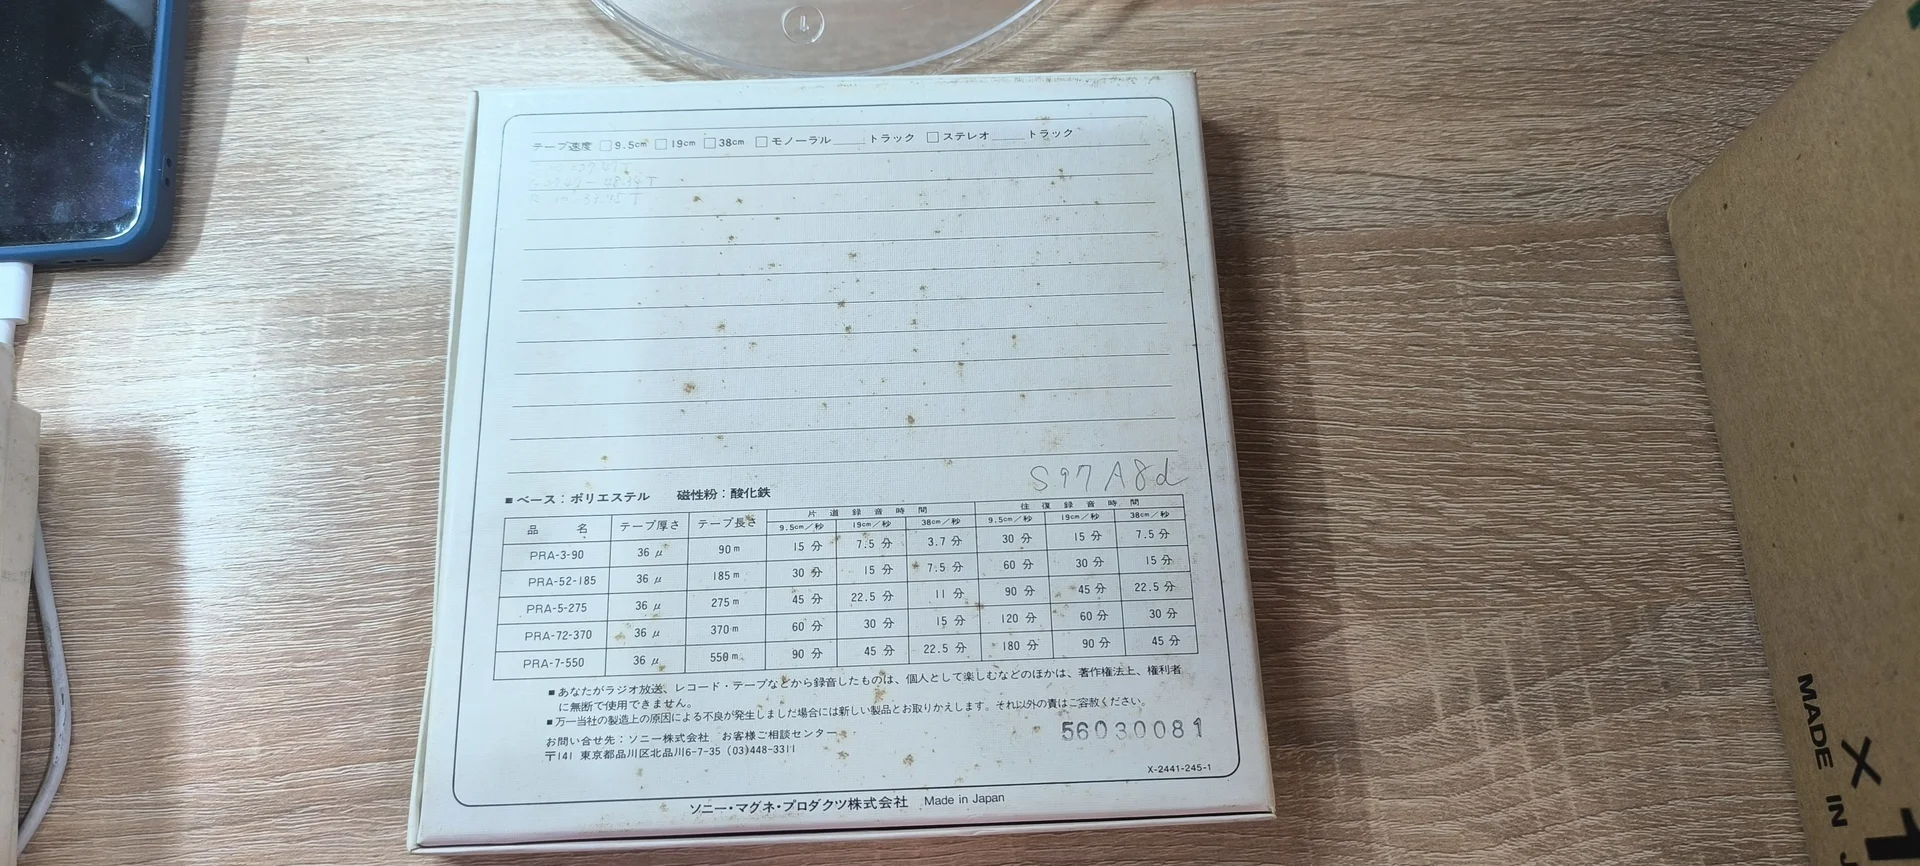 テープ速度 □9.5cm □19cm □38cm □モノーラル____トラック □ステレオ____トラック
S97A8d
■ベース:ポリエステル 磁性粉:酸化鉄
品 名 テープ厚さ テープ長さ 片道録音時間 往復録音時間
9.5cm/秒 19cm/秒 38cm/秒 9.5cm/秒 19cm/秒 38cm/秒
PRA-3-90 36μ 90m 15分 7.5分 3.7分 30分 15分 7.5分
PRA-52-185 36μ 185m 30分 15分 7.5分 60分 30分 15分
PRA-5-275 36μ 275m 45分 22.5分 11分 90分 45分 22.5分
PRA-72-370 36μ 370m 60分 30分 15分 120分 60分 30分
PRA-7-550 36μ 550m 90分 45分 22.5分 180分 90分 45分
■あなたがラジオ放送、レコード・テープなどから録音したものは、個人として楽しむなどのほかは、著作権法上、権利者
に無断で使用できません。
■万一当社の製造上の原因による不良が発生しました場合には新しい製品とお取りかえします。それ以外の責はご容赦ください。
お問い合せ先:ソニー株式会社 お客様ご相談センター
〒141 東京都品川区北品川6-7-35 (03)448-3311
56030081
X-2441-245-1
ソニー・マグネ・プロダクツ株式会社 Made in Japan
MADE IN J
X